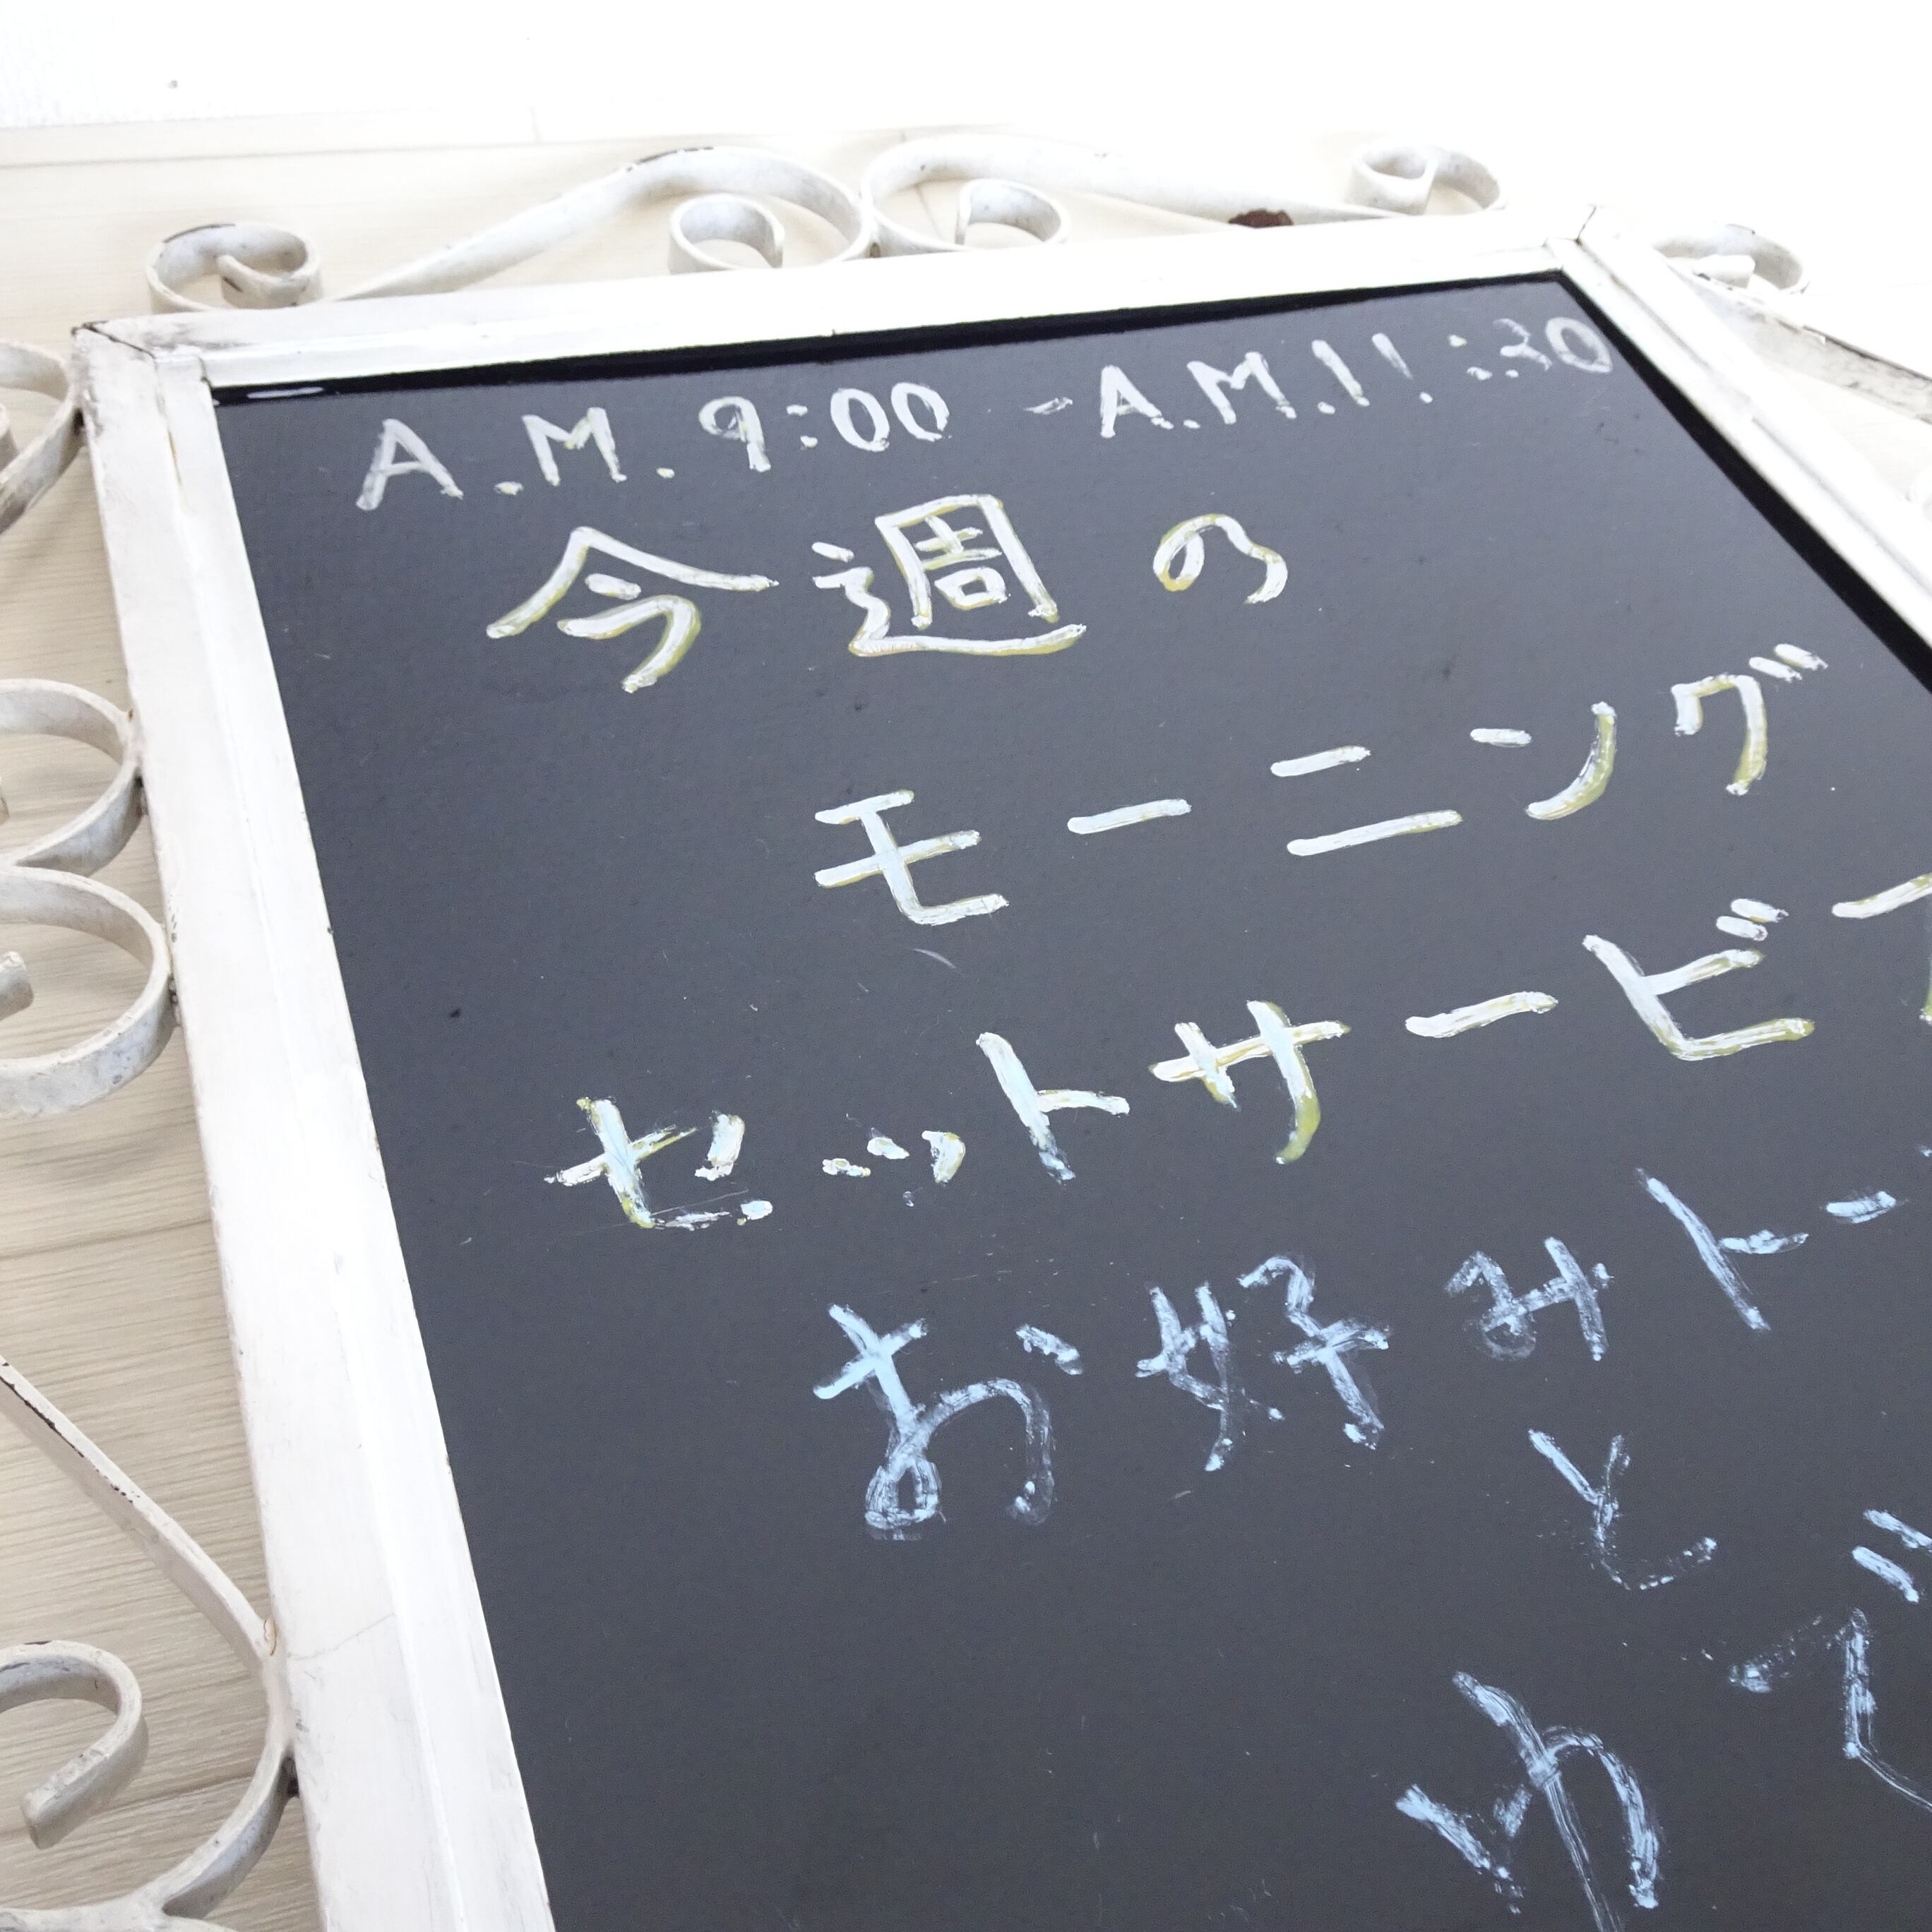 A.M. 9:00 -A.M.11:30
今週の
モーニング
セットサービス
お好みトー
と
ゆで